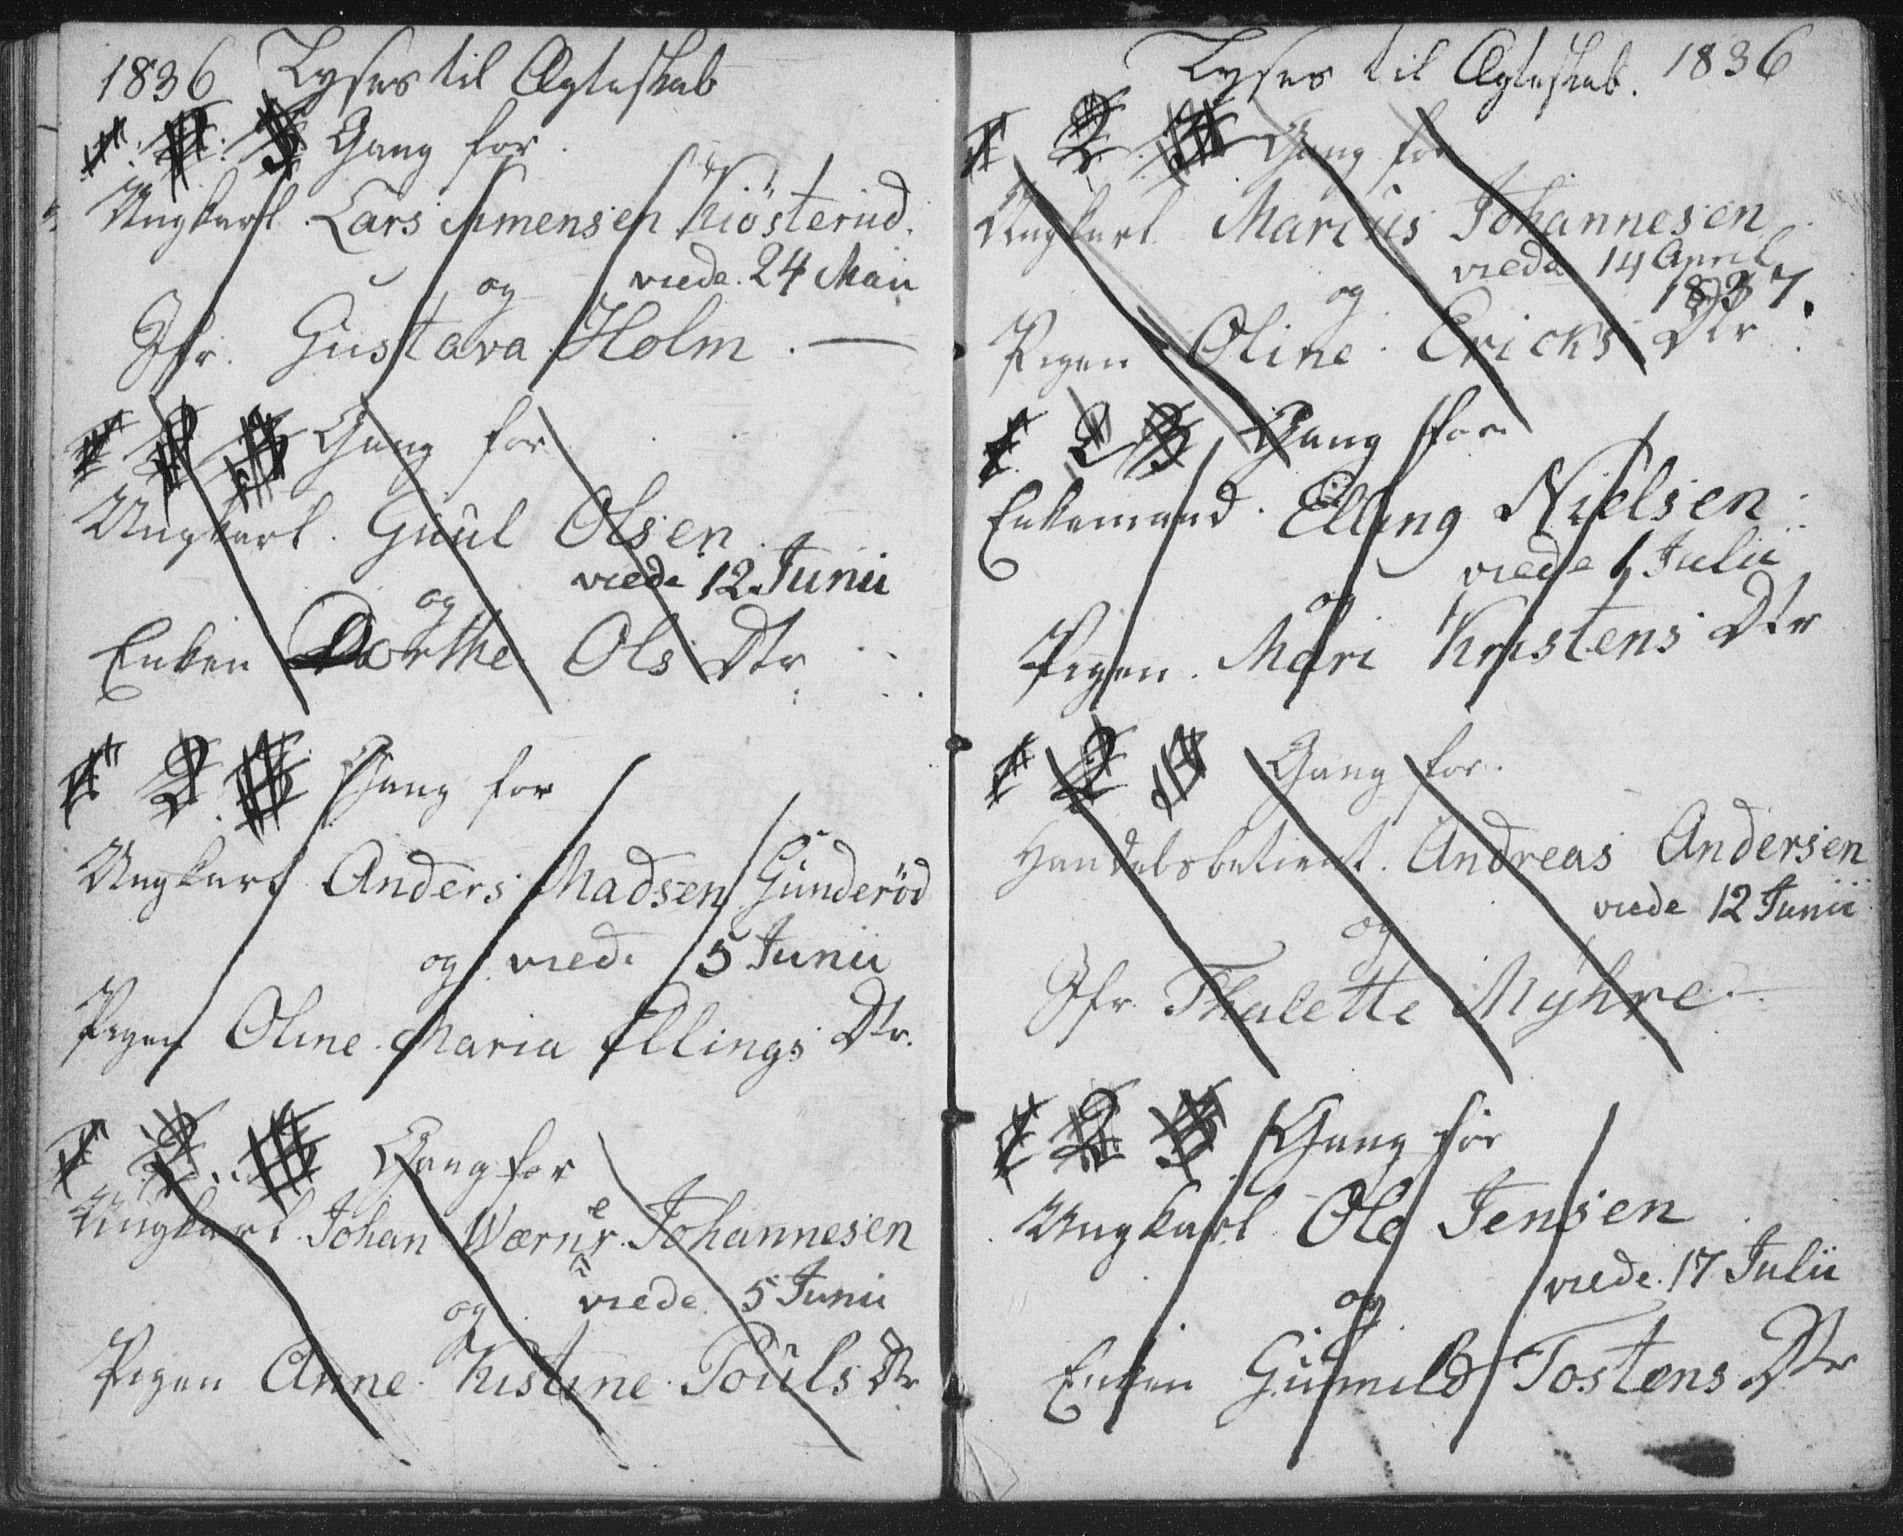 1836 Lyses til Ægteskab
1. 2. 3 Gang for
Ungkarl Lars Simensen Kiøsterud.
og viede 24 Maii
Jfr. Gustava Holm. —
1 2 3 Gang for
Ungkarl. Guul Olsen
viede 12 Junii
og
Enken Dorthe Ols Dtr
1 2 3 Gang for
Ungkarl Anders Madsen Gunderød
og viede 5 Junii
Pigen Oline Maria Ellings Dtr.
1 2 3 Gang for
Ungkarl Johan Wærner Johannesen
og viede 5 Junii
Pigen Anne Kistine Pouls Dtr
Lyses til Ægteskab. 1836
1 2 3 Gang for
Ungkarl Marius Johannesen
viede 14 April
og 1837.
Pigen Oline Ericks Dtr
1 2 3 Gang for
Enkemand. Elling Nielsen
viede 1 Julii
og
Pigen. Mari Kristens Dtr
1 2 3 Gang for.
Handelsbetient. Andreas Andersen
viede 12 Junii
og
Jfr Thalette Myhre
1 2 3 Gang for
Ungkarl Ole Jensen
viede 17 Julii
og
Enken Gunnild Tostens Dtr